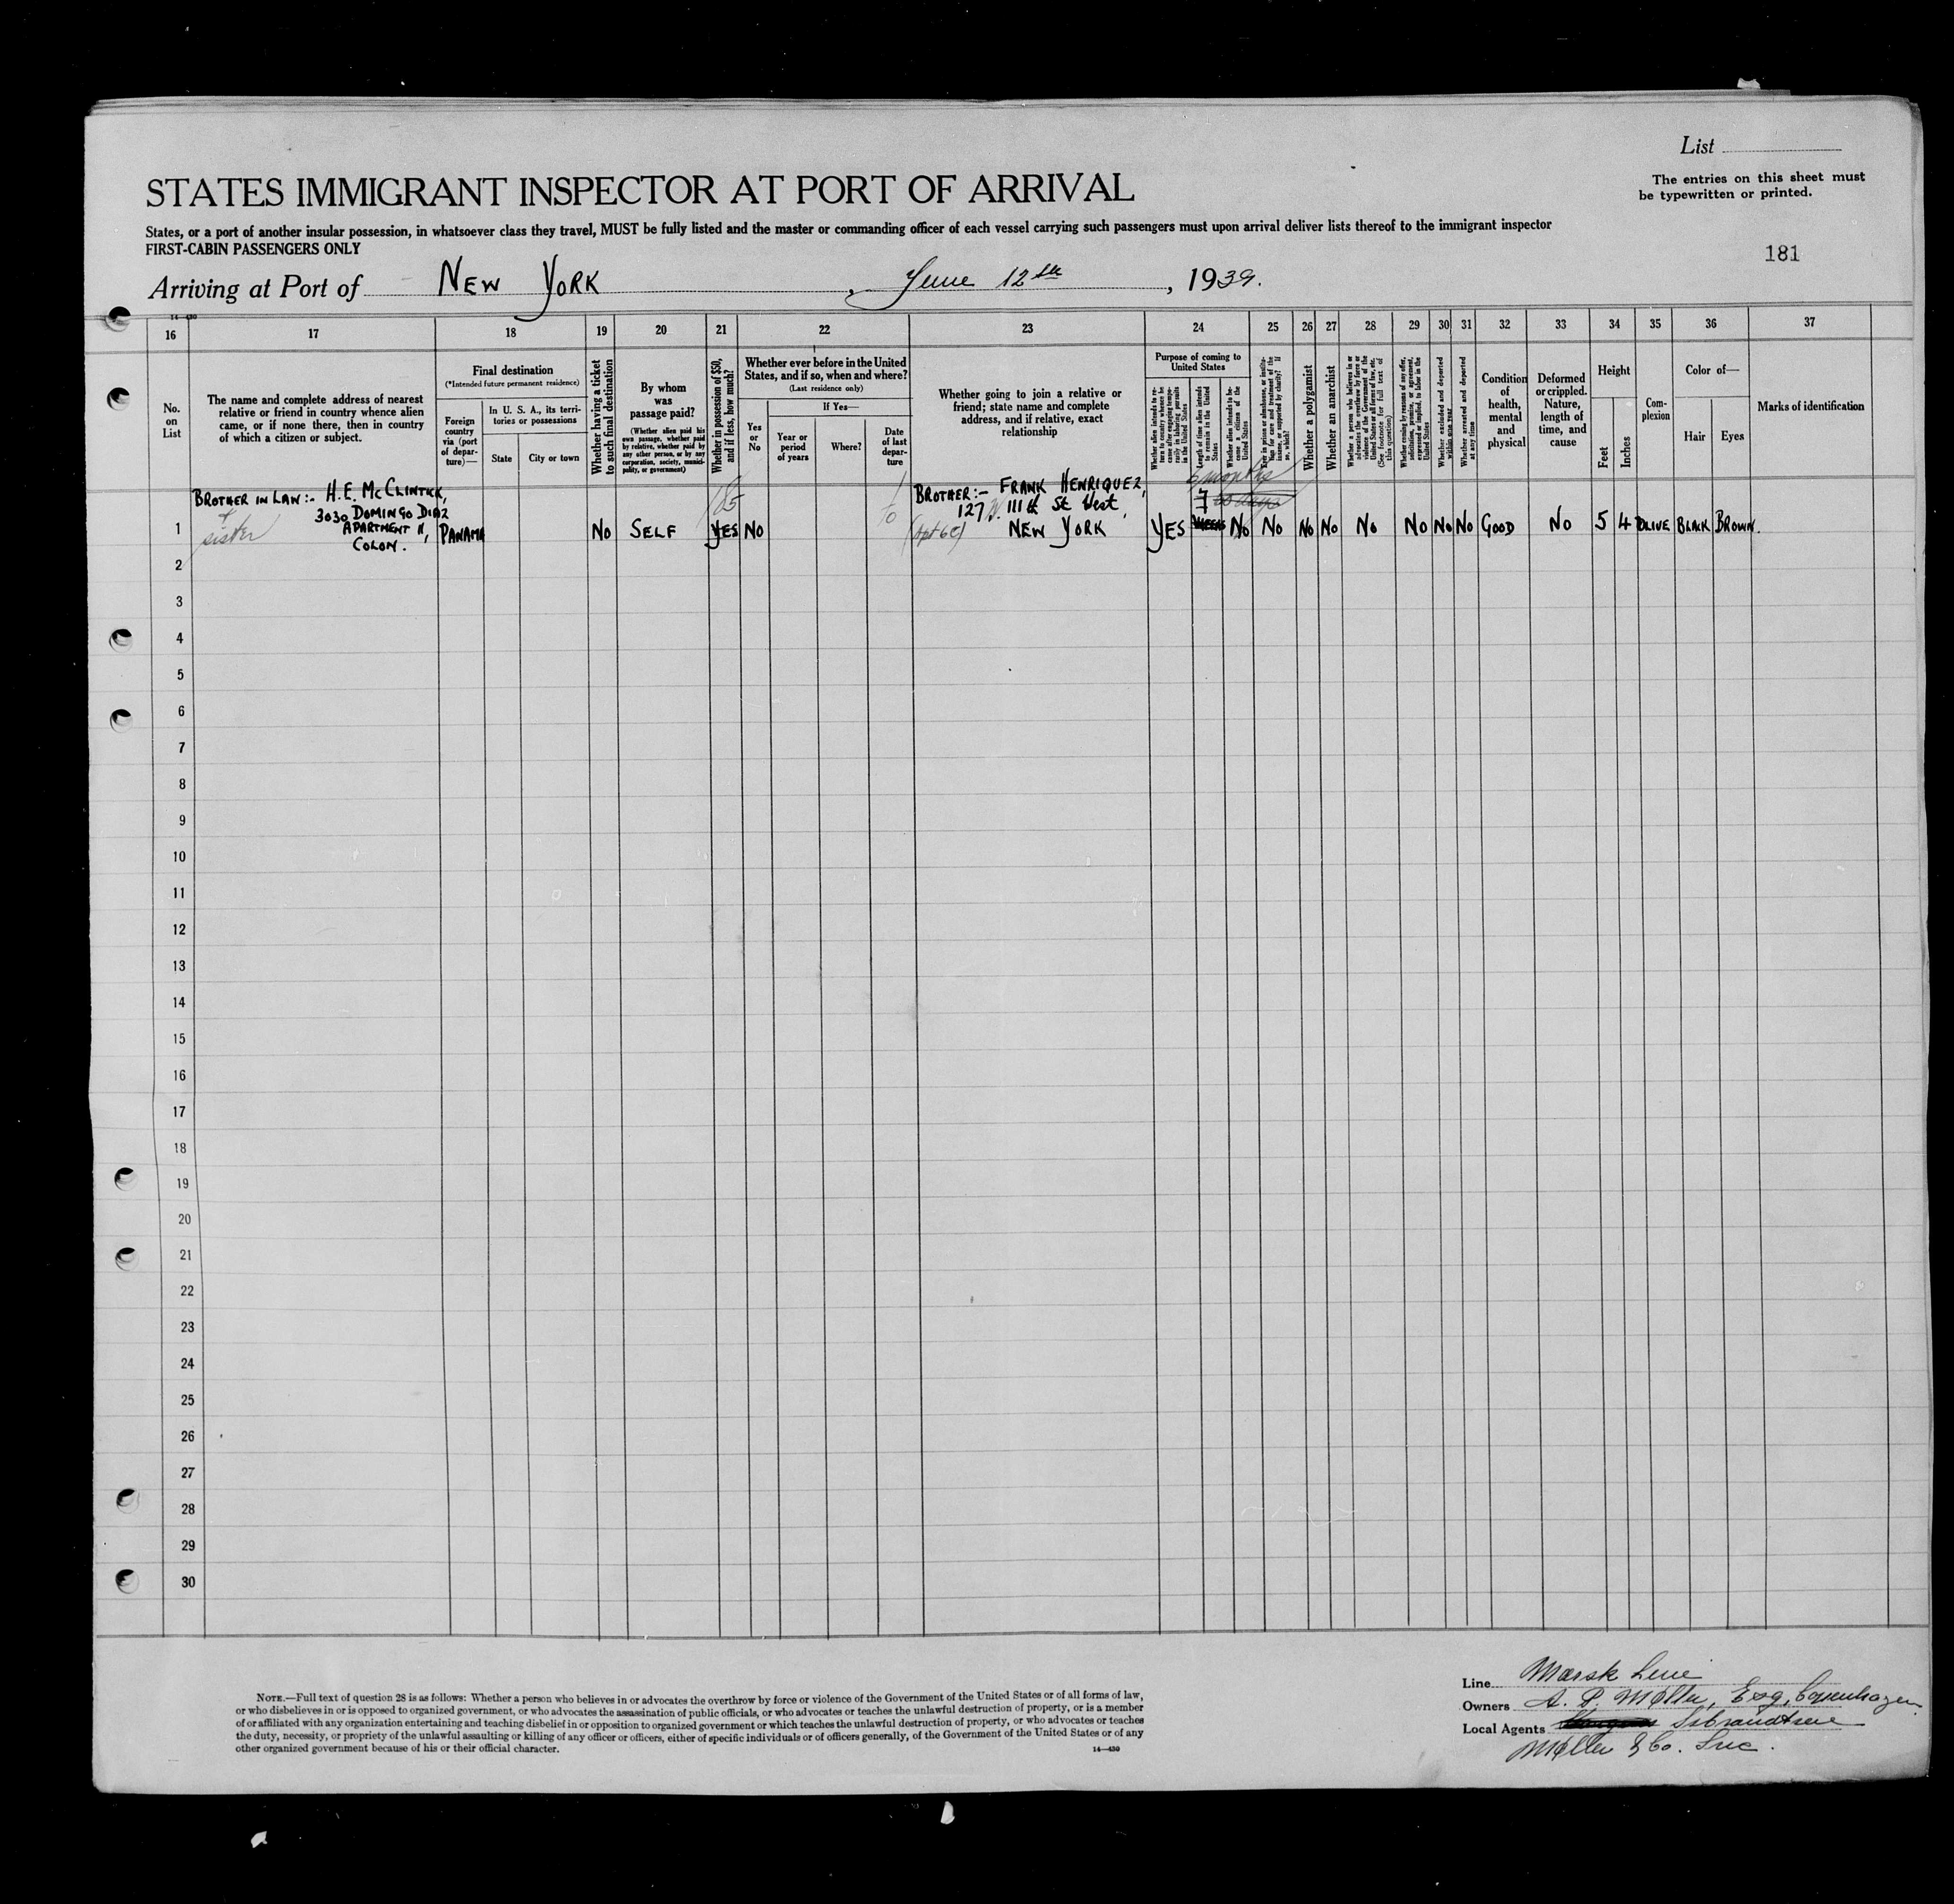 List
The entries on this sheet must
be typewritten or printed.
STATES IMMIGRANT INSPECTOR AT PORT OF ARRIVAL
States, or a port of another insular possession, in whatsoever class they travel, MUST be fully listed and the master or commanding officer of each vessel carrying such passengers must upon arrival deliver lists thereof to the immigrant inspector
FIRST-CABIN PASSENGERS ONLY
181
Arriving at Port of NEW YORK, June 12th, 1939.
14-430
16 17 18 19 20 21 22 23 24 25 26 27 28 29 30 31 32 33 34 35 36 37
No.
on
List
The name and complete address of nearest
relative or friend in country whence alien
came, or if none there, then in country
of which a citizen or subject.
Final destination
(*Intended future permanent residence)
Foreign
country
via (port
of depar-
ture)—
In U. S. A., its terri-
tories or possessions
State
City or town
Whether having a ticket
to such final destination
By whom
was
passage paid?
(Whether alien paid his
own passage, whether paid
by relative, whether paid by
any other person, or by any
corporation, society, munici-
pality, or government)
Whether in possession of $50,
and if less, how much?
Whether ever before in the United
States, and if so, when and where?
(Last residence only)
Yes
or
No
If Yes—
Year or
period
of years
Where?
Date
of last
depar-
ture
Whether going to join a relative or
friend; state name and complete
address, and if relative, exact
relationship
Purpose of coming to
United States
Whether alien intends to re-
turn to country whence he
came after engaging tempo-
rarily in laboring pursuits
in the United States
Length of time alien intends
to remain in the United
States
Whether alien intends to be-
come a citizen of the
United States
Ever in prison or almshouse, or institu-
tion for care and treatment of the
insane, or supported by charity? If
so, which?
Whether a polygamist
Whether an anarchist
Whether a person who believes in or
advocates the overthrow by force or
violence of the Government of the
United States or all forms of law, etc.
(See footnote for full text of
this question)
Whether coming by reasons of any offer,
solicitation, promise, or agreement,
expressed or implied, to labor in the
United States
Whether excluded and deported
within one year
Whether arrested and deported
at any time
Condition
of
health,
mental
and
physical
Deformed
or crippled.
Nature,
length of
time, and
cause
Height
Feet
Inches
Com-
plexion
Color of—
Hair
Eyes
Marks of identification
BROTHER IN LAW:- H.E. McCLINTICK,
3030 DOMINGO DIAZ
APARTMENT 11,
COLON.
& sister
1 PANAMA NO SELF YES 185 NO
BROTHER:- FRANK HENRIQUEZ,
127 W. 111th St West,
(Apt 6C) NEW YORK
6 months
60 days
YES NO NO NO NO NO NO NO NO GOOD NO 5 4 OLIVE BLACK BROWN.
2
3
4
5
6
7
8
9
10
11
12
13
14
15
16
17
18
19
20
21
22
23
24
25
26
27
28
29
30
NOTE.—Full text of question 28 is as follows: Whether a person who believes in or advocates the overthrow by force or violence of the Government of the United States or of all forms of law,
or who disbelieves in or is opposed to organized government, or who advocates the assassination of public officials, or who advocates or teaches the unlawful destruction of property, or is a member
of or affiliated with any organization entertaining and teaching disbelief in or opposition to organized government or which teaches the unlawful destruction of property, or who advocates or teaches
the duty, necessity, or propriety of the unlawful assaulting or killing of any officer or officers, either of specific individuals or of officers generally, of the Government of the United States or of any
other organized government because of his or their official character.
14-430
Line Mærsk Line
Owners A. P. Møller, Esq, Copenhagen
Local Agents Isbrandtsen
Møller & Co. Inc.